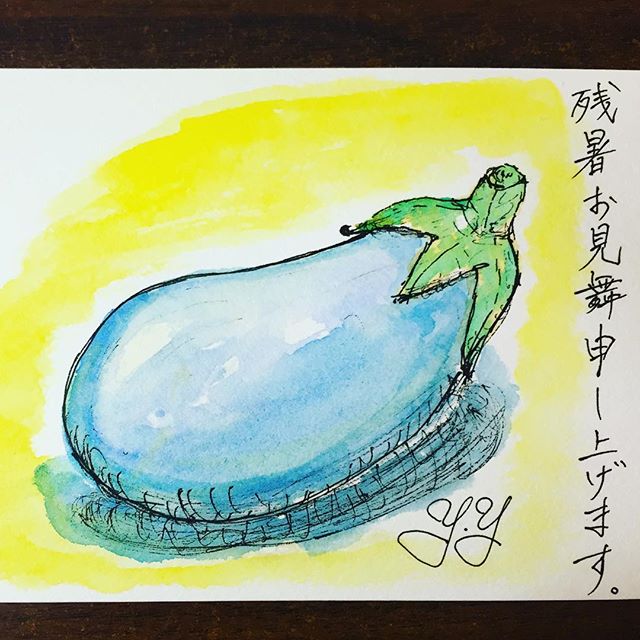 残暑お見舞申し上げます。
Y.Y